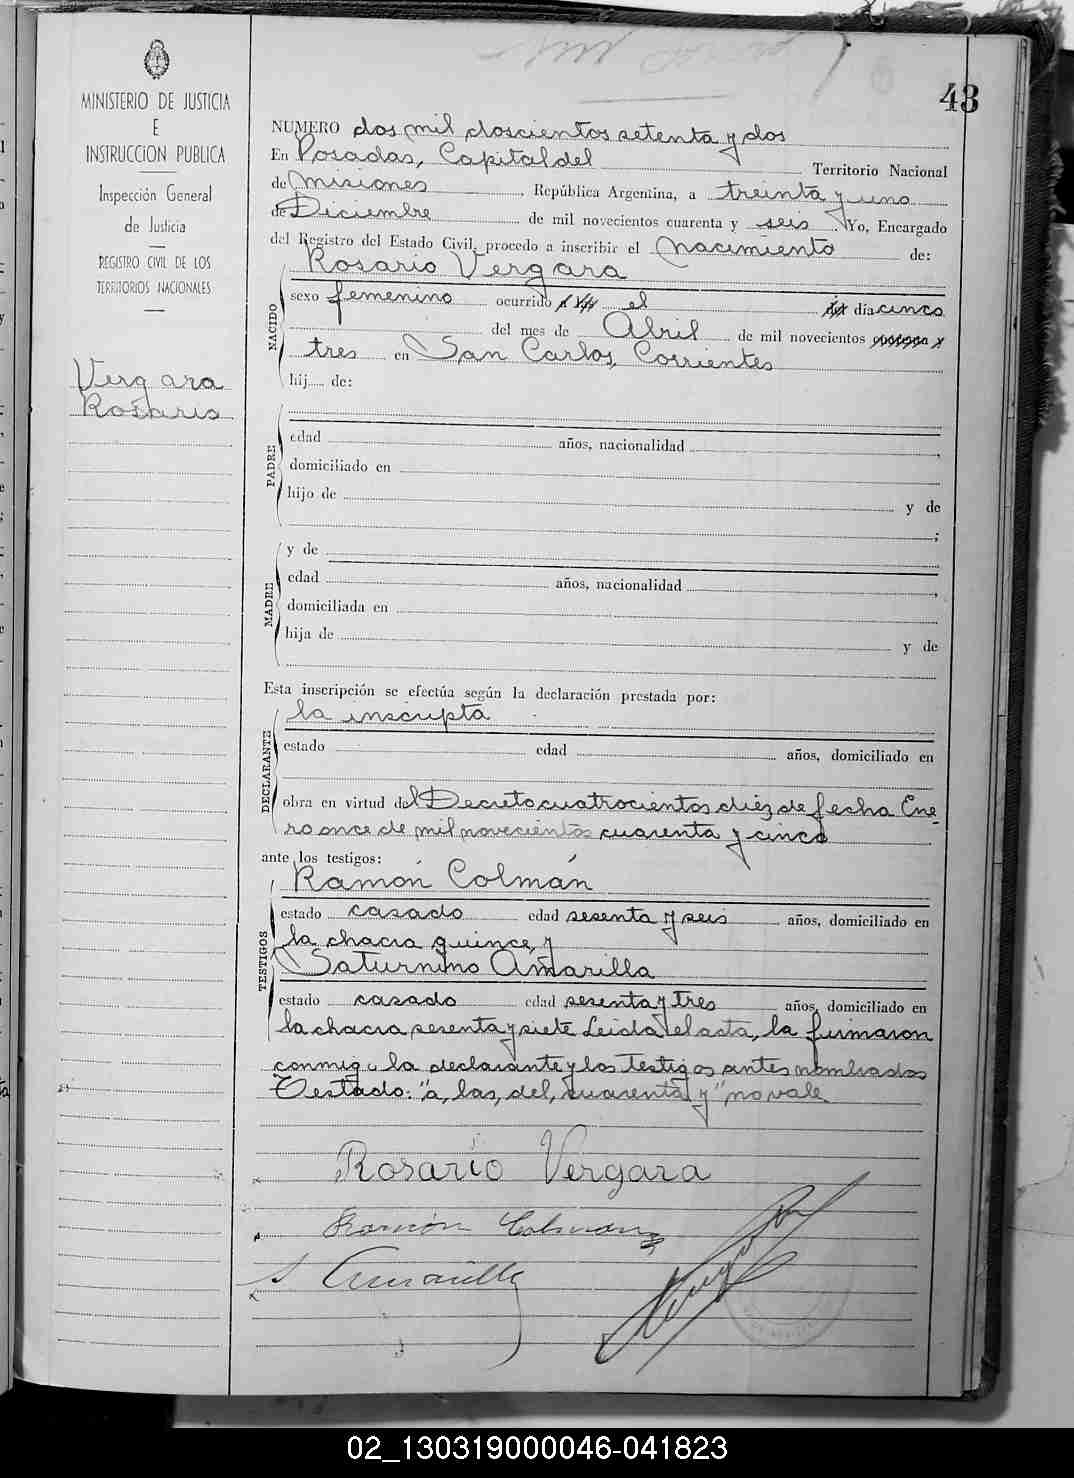 43
MINISTERIO DE JUSTICIA
E
INSTRUCCION PUBLICA
Inspección General
de Justicia
REGISTRO CIVIL DE LOS
TERRITORIOS NACIONALES
Vergara
Rosario
NUMERO dos mil doscientos setenta y dos
En Posadas, Capital del Territorio Nacional
de Misiones República Argentina, a treinta y uno
de Diciembre de mil novecientos cuarenta y seis. Yo, Encargado
del Registro del Estado Civil, procedo a inscribir el Nacimiento de:
Rosario Vergara
NACIDO
sexo femenino ocurrido a las el del día cinco
del mes de Abril de mil novecientos cuarenta y
tres en San Carlos, Corrientes
hij de:
PADRE
edad años, nacionalidad ,
domiciliado en
hijo de y de
;
MADRE
y de
edad años, nacionalidad ,
domiciliada en
hija de y de
Esta inscripción se efectúa según la declaración prestada por:
DECLARANTE
la inscripta
estado edad años, domiciliado en
obra en virtud del Decreto cuatrocientos diez de fecha Ene-
ro once de mil novecientos cuarenta y cinco
ante los testigos:
TESTIGOS
Ramón Colmán
estado casado edad sesenta y seis años, domiciliado en
la chacra quince, y
Saturnino Amarilla
estado casado edad sesenta y tres años, domiciliado en
la chacra sesenta y siete Leida el acta, la firmaron
conmigo la declarante y los testigos antes nombrados
Testado: "a, las, del, cuarenta y" no vale
Rosario Vergara
Ramón Colman
S. Amarilla
02_130319000046-041823